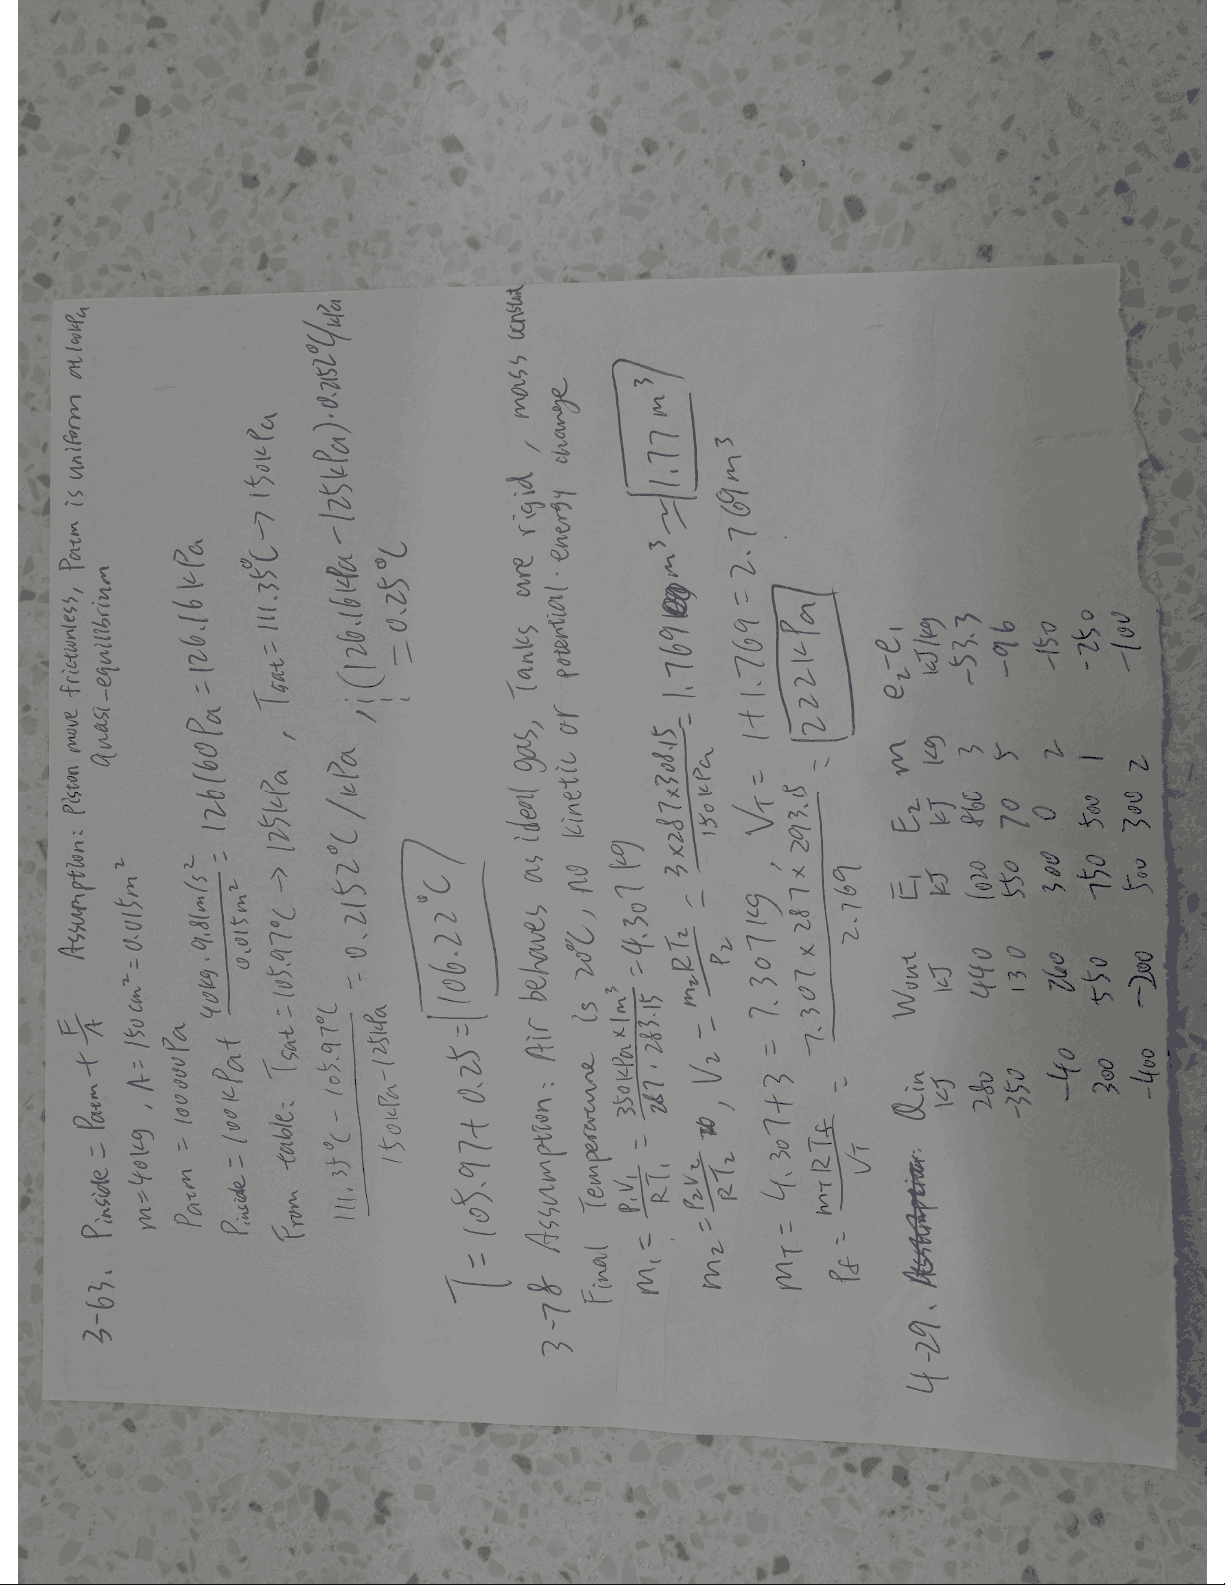 3-63. Pinside = Patm + F/A Assumption: Piston move frictionless, Patm is uniform at 100kPa
m=40kg, A=150cm²=0.015m² Quasi-equilibrium
Patm = 100000Pa
Pinside = 100kPa+ 40kg·9.81m/s² / 0.015m² = 126160Pa = 126.16kPa
From table: Tsat=105.97°C → 125kPa, Tsat=111.35°C → 150kPa
111.35°C - 105.97°C / 150kPa-125kPa = 0.2152°C/kPa, ; (126.16kPa-125kPa)·0.2152°C/kPa
= 0.25°C
T = 105.97+0.25 = 106.22°C
3-78 Assumption: Air behaves as ideal gas, Tanks are rigid, mass constant
Final Temperature is 20°C, no kinetic or potential energy change
m1 = P1V1 / RT1 = 350kPa×1m³ / 287·283.15 = 4.307kg
m2 = P2V2 / RT2, V2 = m2RT2 / P2 = 3×287×308.15 / 150kPa = 1.769 m³ ≈ 1.77m³
mT = 4.307+3 = 7.307kg, VT = 1+1.769 = 2.769m³
Pf = mTRTf / VT = 7.307×287×293.15 / 2.769 = 222kPa
4-29. Qin Wout E1 E2 m e2-e1
kJ kJ kJ kJ kg kJ/kg
280 440 1020 860 3 -53.3
-350 130 550 70 5 -96
-40 260 300 0 2 -150
300 550 750 500 1 -250
-400 -200 500 300 2 -100